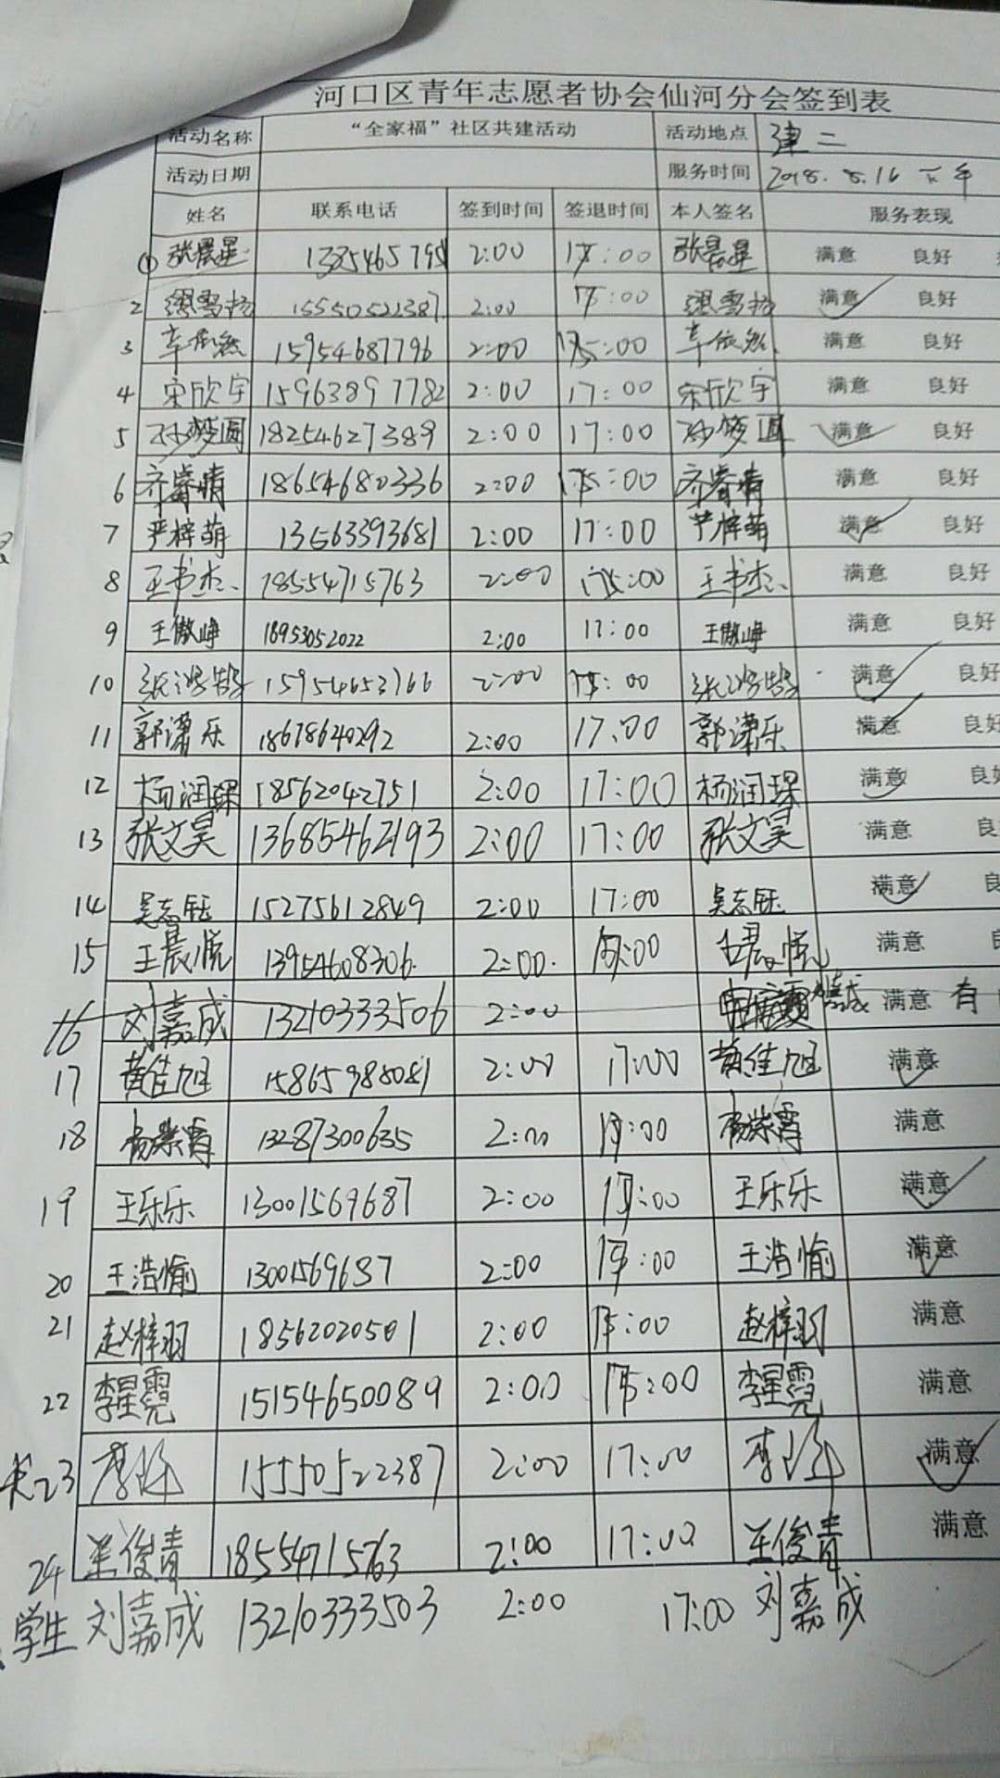 河口区青年志愿者协会仙河分会签到表
活动名称 “全家福”社区共建活动 活动地点 建二
活动日期 服务时间 2018.8.16 下午
姓名 联系电话 签到时间 签退时间 本人签名 服务表现
① 张晨星 2:00 17:00 张晨星 满意 良好
2 15550522387 2:00 17:00 满意 良好
3 辛依然 15954687796 2:00 17:00 辛依然 满意 良好
4 宋欣宇 15963897782 2:00 17:00 宋欣宇 满意 良好
5 孙梦圆 18254627389 2:00 17:00 孙梦圆 满意 良好
6 齐睿情 18654680336 2:00 17:00 齐睿情 满意 良好
7 严梓萌 13563393681 2:00 17:00 严梓萌 满意 良好
8 王书杰 18554715763 2:00 17:00 王书杰 满意 良好
9 王傲峥 18953052022 2:00 17:00 王傲峥 满意 良好
10 张鸿鹄 15954653766 2:00 17:00 张鸿鹄 满意 良好
11 郭潇乐 18678640292 2:00 17:00 郭潇乐 满意 良好
12 杨润琛 18562042751 2:00 17:00 杨润琛 满意 良
13 张文昊 13685462193 2:00 17:00 张文昊 满意 良
14 吴志钰 15275612849 2:00 17:00 吴志钰 满意 良
15 王晨悦 13954608306 2:00 17:00 王晨悦 满意
16 刘嘉成 13210333506 2:00 刘嘉成 满意 有
17 黄佳旭 15865985081 2:00 17:00 黄佳旭 满意
18 杨紫霄 13287300635 2:00 17:00 杨紫霄 满意
19 王乐乐 13001569687 2:00 17:00 王乐乐 满意
20 王浩愉 13001569687 2:00 17:00 王浩愉 满意
21 赵梓羽 18562020501 2:00 17:00 赵梓羽 满意
22 李星霓 15154650089 2:00 17:00 李星霓 满意
23 15550522387 2:00 17:00 满意
24 王俊青 18554715763 2:00 17:00 王俊青 满意
学生 刘嘉成 13210333503 2:00 17:00 刘嘉成